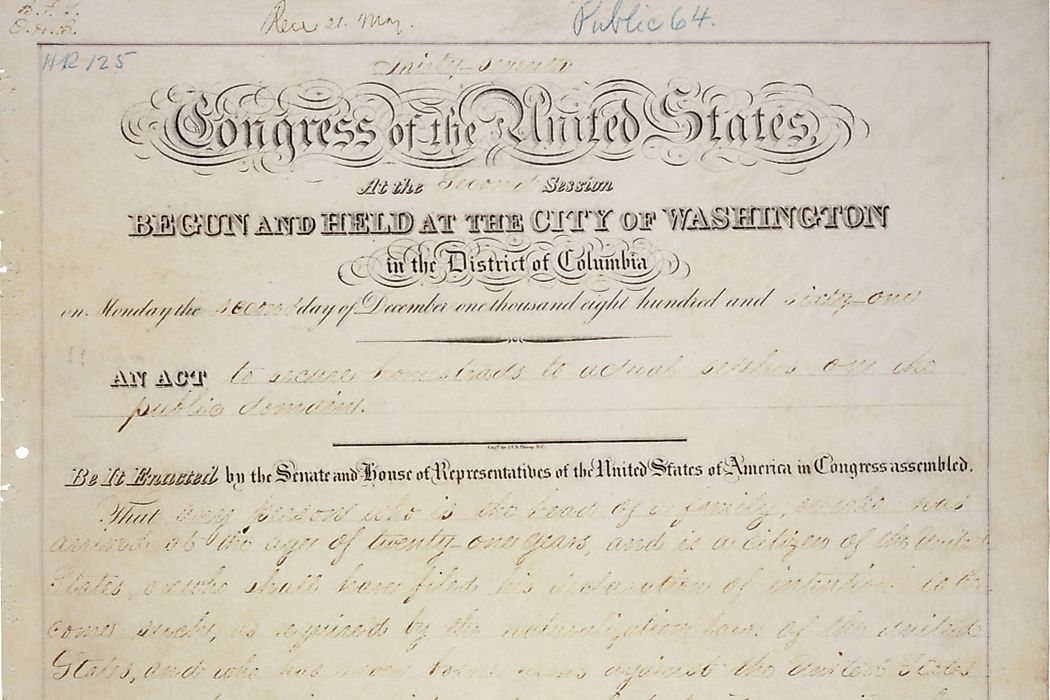 Public 64.
HR 125
Thirty-seventh
Congress of the United States,
At the Second Session
BEGUN AND HELD AT THE CITY OF WASHINGTON
in the District of Columbia
on Monday the second day of December one thousand eight hundred and sixty-one
AN ACT to secure homesteads to actual settlers on the
public domain.
Be It Enacted by the Senate and House of Representatives of the United States of America in Congress assembled,
That any person who is the head of a family, or who has
arrived at the age of twenty-one years, and is a citizen of the United
States, or who shall have filed his declaration of intention to be-
come such, as required by the naturalization laws of the United
States, and who has never borne arms against the United States